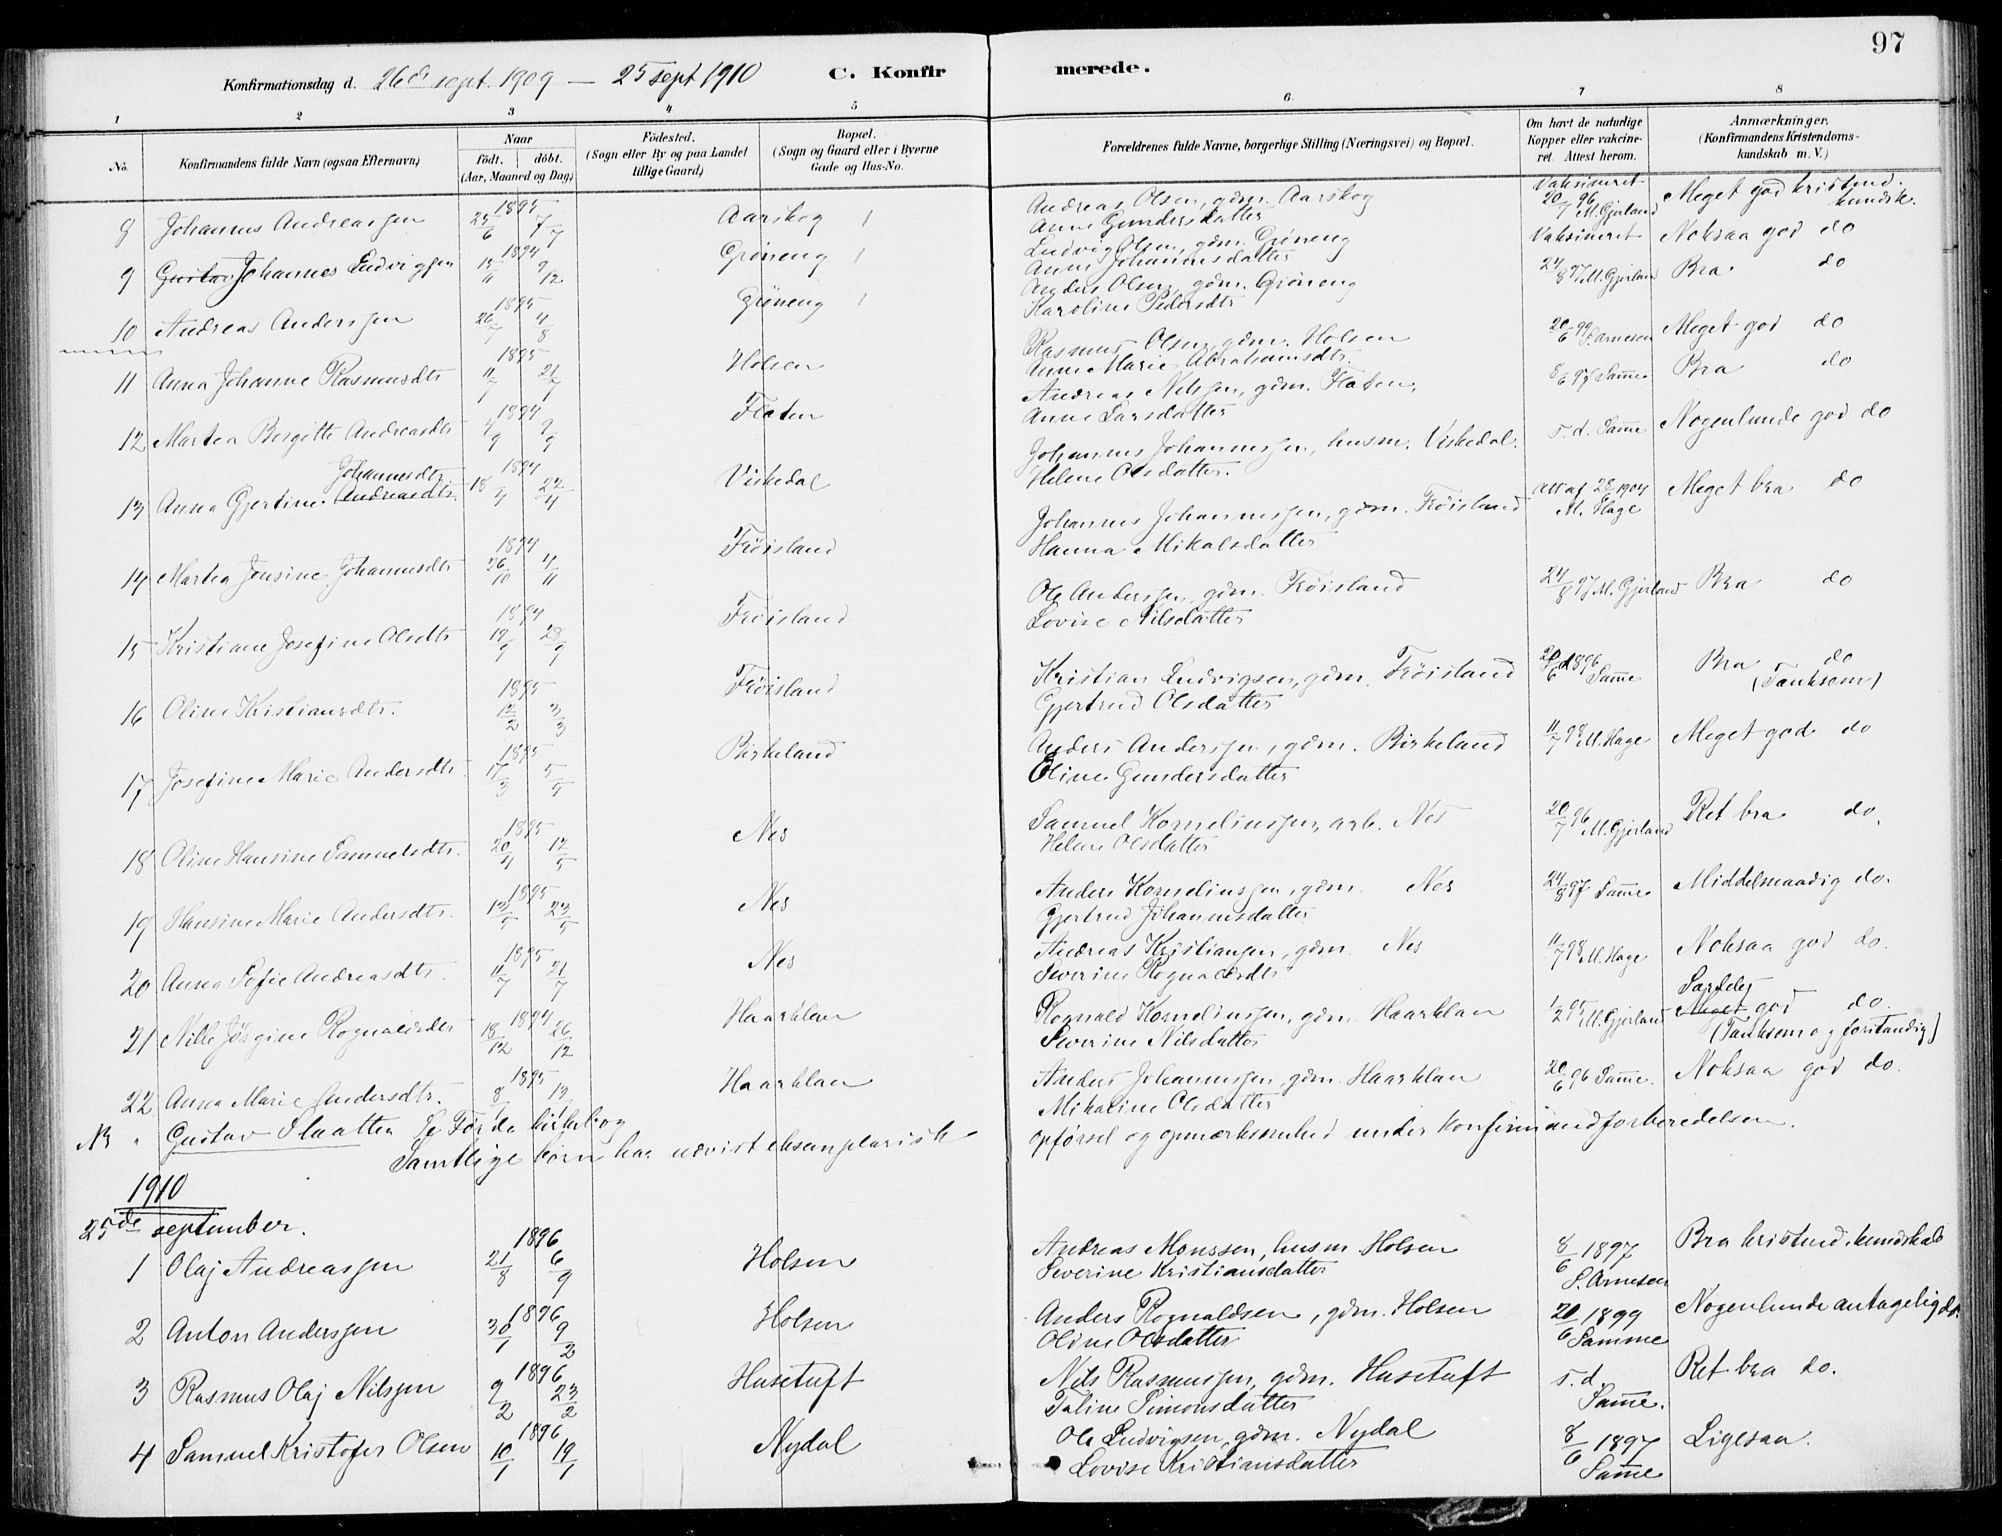 97
Konfirmationsdag d. 26de sept. 1909 — 25 sept 1910 C. Konfirmerede.
1 2 3 4 5 6 7 8
No. Konfirmandens fulde Navn (ogsaa Efternavn) Naar födt. döbt. (Aar, Maaned og Dag) Födested. (Sogn eller By og paa Landet tillige Gaard) Bopæl. (Sogn og Gaard eller i Byerne Gade og Hus-No. Forældrenes fulde Navne, borgerlige Stilling (Næringsvei) og Bopæl. Om havt de naturlige Kopper eller vakcineret. Attest herom. Anmærkninger. (Konfirmandens Kristendomskundskab m. V.)
8 Johannes Andreassen 1895 25/6 7/7 Aarskog Andreas Olsen, gdm. Aarskog Vaksineret 20/7 96 M. Gjerland Meget god kristend. kundsk.
Anne Gundersdatter
9 Gustav Johannes Ludvigsen 1894 15/11 9/12 Grøneng Ludvig Olsen, gdm. Grøneng Vaksineret Noksaa god do
Anne Johannesdatter
10 Andreas Anderssen 1895 26/7 4/8 Grøneng Anders Olsen, gdm. Grøneng 24/8 97 M. Gjerland Bra do
Karoline Pedersdtr
11 Anna Johanne Rasmusdtr 1895 11/7 21/7 Holsen Rasmus Olsen, gdm. Holsen 20/6 99 S. Arnesen Meget god do
Anne Marie Abrahamsdtr.
12 Martea Bergitte Andreasdtr 1894 4/9 9/9 Flaten Andreas Nilssen, gdm. Flaten 8/6 97 Samme Bra do
Anne Larsdatter
13 Anna Gjertine Andreasdtr. Johannesdtr 1894 18/4 22/4 Viskedal Johannes Johannessen, husm. Viskedal. s. d. Samme Nogenlunde god do
Helene Olsdatter.
14 Martea Jensine Johannesdtr 1894 26/10 4/11 Frøisland Johannes Johannessen, gdm. Frøisland Att af 28 1904 M. Hage Meget bra do
Hanna Mikalsdatter
15 Kristiane Josefine Olsdtr 1894 19/9 28/9 Frøisland Ole Anderssen, gdm. Frøisland 24/8 97 M. Gjerland Bra do
Lovise Nilsdatter
16 Oline Kristiansdtr. 1895 12/2 3/3 Frøisland Kristian Ludvigsen, gdm. Frøisland 20/6 1896 Samme Bra do (Tænksom)
Gjertrud Olsdatter
17 Josefine Marie Andersdtr 1895 17/3 5/5 Birkeland Anders Anderssen, gdm. Birkeland 11/7 98 M. Hage Meget god do
Eline Gundersdatter
18 Oline Hansine Samuelsdtr. 1895 20/4 12/5 Nes Samuel Korneliussen, arb. Nes 20/7 96 M. Gjerland Ret bra do.
Helene Olsdatter
19 Hansine Marie Andersdtr. 1895 13/5 23/5 Nes Anders Korneliussen, gdm. Nes 24/8 97 Samme Middelmaadig do.
Gjertrud Johannesdatter
20 Anna Sofie Andreasdtr. 1895 11/7 21/7 Nes Andreas Kristiansen, gdm. Nes 11/7 98 M. Hage Noksaa god do.
Severine Rognaldsdtr
21 Nille Jørgine Rognaldsdtr 1894 18/12 26/12 Haarklau Rognald Korneliussen, gdm. Haarklau 1/2 95 M. Gjerland Særdeles Meget god do. (Tænksom og forstandig)
Severine Nilsdatter
22 Anna Marie Andersdtr. 1895 8/1 13/1 Haarklau Anders Johannessen, gdm. Haarklau 20/6 96 Samme. Noksaa god do.
Mikaline Olsdatter
NB " Gustav Slaatten Se Førde kirkebog
Samtlige børn har udvist eksemplarisk opførsel og opmærksomhed under konfirmandforberedelsen.
1910
25de september.
1 Olaf Andreassen 1896 21/8 6/9 Holsen Andreas Monssen, husm Holsen 8/6 1897 S. Arnesen Bra kristend. kundskab
Severine Kristiansdatter
2 Anton Anderssen 1896 30/1 9/2 Holsen Anders Rognaldsen, gdm. Holsen 20/6 1899 Samme Nogenlunde antagelig do.
Oline Olsdatter
3 Rasmus Olaf Nilssen 1896 9/2 23/2 Husetuft Nils Rasmussen, gdm. Husetuft s. d. Samme. Ret bra do.
Taline Simonsdatter
4 Samuel Kristofer Olsen 1896 10/1 19/1 Nydal Ole Ludvigsen, gdm. Nydal 8/6 1897 Samme Ligesaa.
Lovise Kristiansdatter